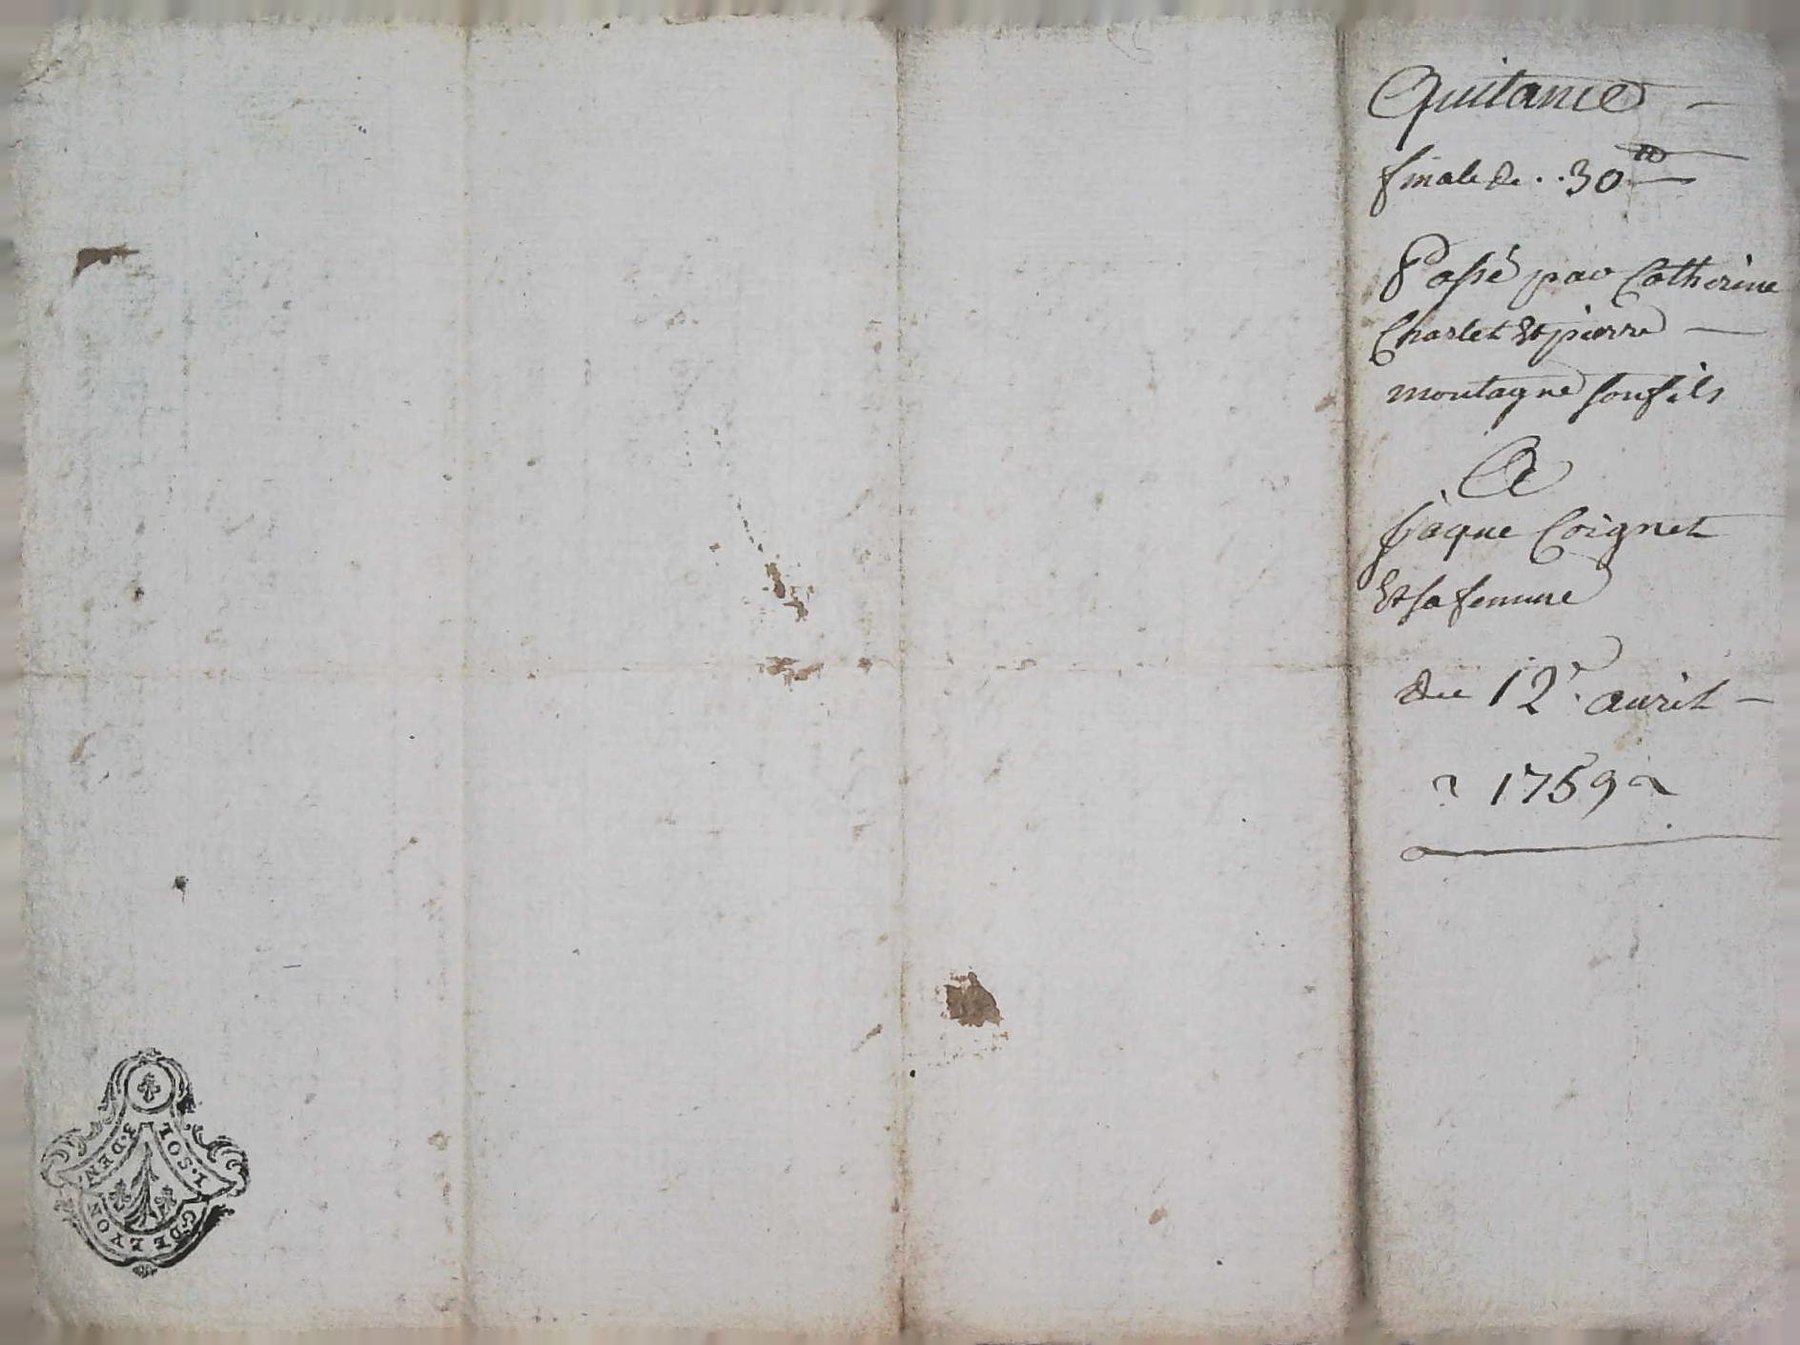 Quitance
finale de . . 30 ₶
Passé par Catherine
Charlet Et pierre
montagne son fils
A
Jaque Coignet
Et sa femme
du 12. auril
1759
L. SOL
3. DEN
G. DE LYON